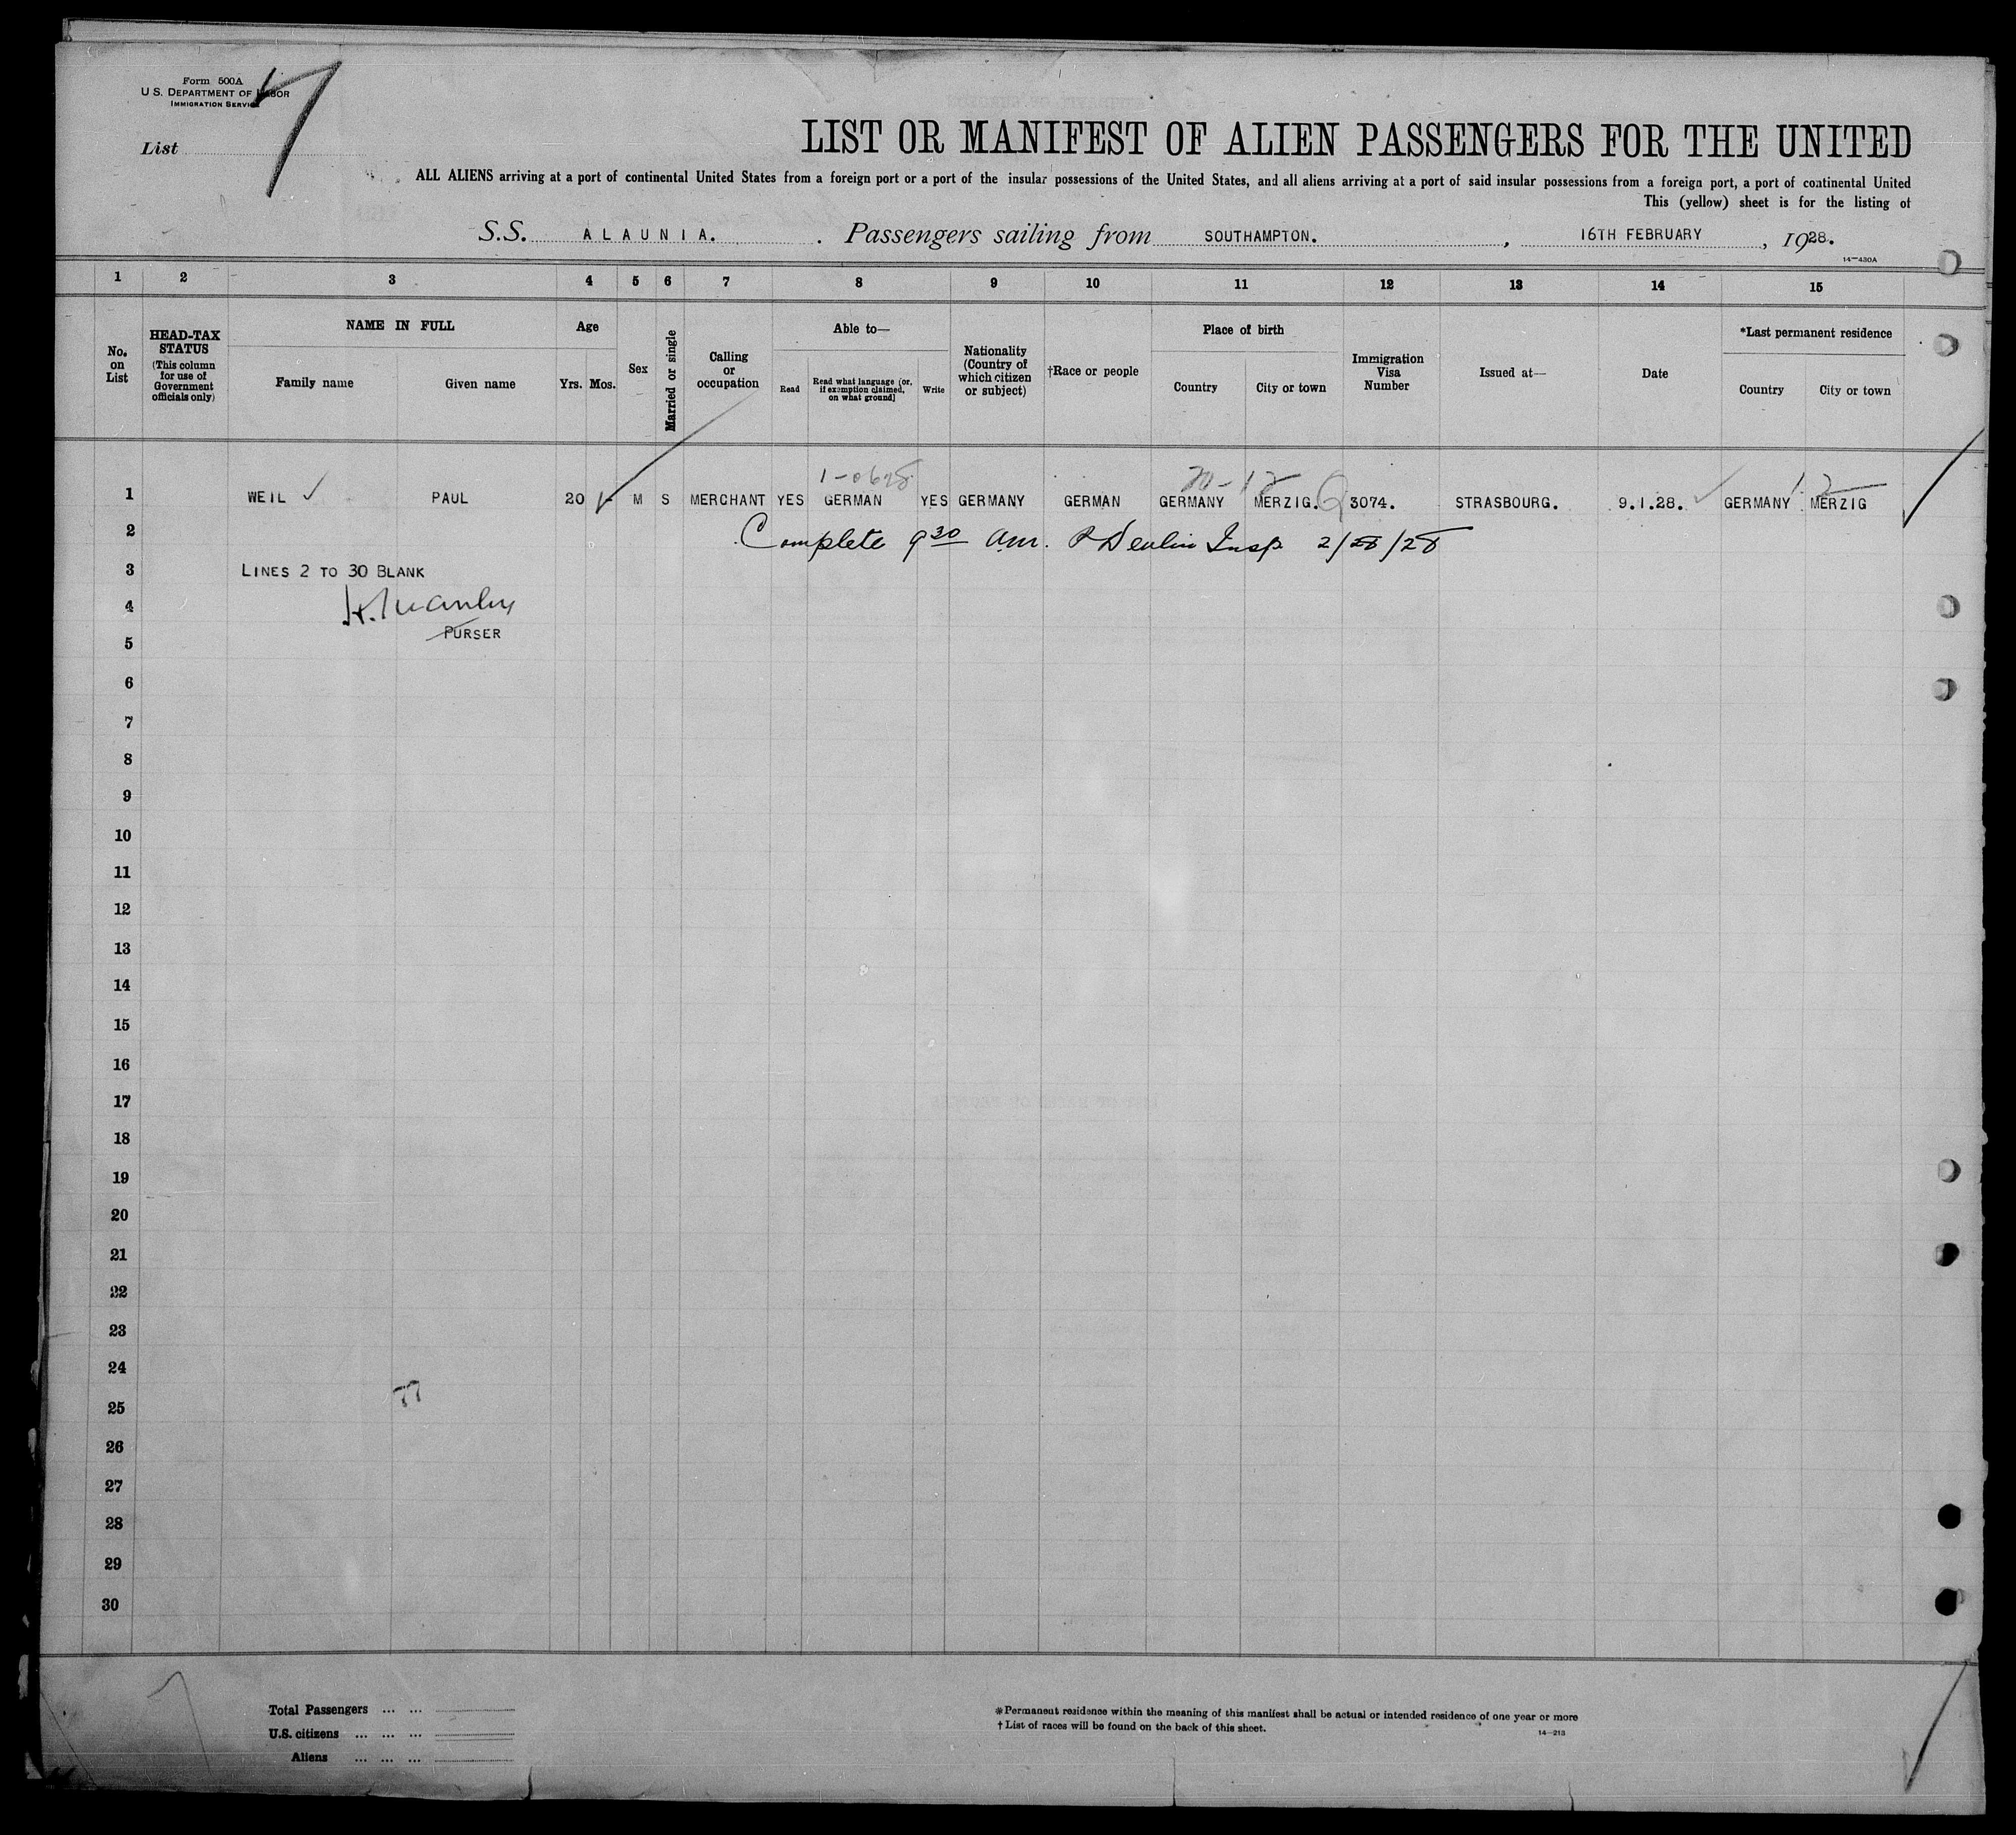 Form 500A
U.S. DEPARTMENT OF LABOR
IMMIGRATION SERVICE
List 7
LIST OR MANIFEST OF ALIEN PASSENGERS FOR THE UNITED
ALL ALIENS arriving at a port of continental United States from a foreign port or a port of the insular possessions of the United States, and all aliens arriving at a port of said insular possessions from a foreign port, a port of continental United
This (yellow) sheet is for the listing of
S.S. ALAUNIA. Passengers sailing from SOUTHAMPTON. , 16TH FEBRUARY , 1928.
14—430A
1 2 3 4 5 6 7 8 9 10 11 12 13 14 15
No. on List
HEAD-TAX STATUS
(This column for use of Government officials only)
NAME IN FULL
Family name Given name
Age
Yrs. Mos.
Sex
Married or single
Calling or occupation
Able to—
Read
Read what language (or, if exemption claimed, on what ground)
Write
Nationality (Country of which citizen or subject)
†Race or people
Place of birth
Country City or town
Immigration Visa Number
Issued at—
Date
*Last permanent residence
Country City or town
1 WEIL PAUL 20 M S MERCHANT YES GERMAN YES GERMANY GERMAN GERMANY MERZIG. 3074. STRASBOURG. 9.1.28. GERMANY MERZIG
2 Complete 9 30 am. Insp. 2/28/28
3 LINES 2 TO 30 BLANK
4
PURSER
5
6
7
8
9
10
11
12
13
14
15
16
17
18
19
20
21
22
23
24
77
25
26
27
28
29
30
Total Passengers ... ...
U.S. citizens ... ... ...
Aliens ... ... ...
*Permanent residence within the meaning of this manifest shall be actual or intended residence of one year or more
†List of races will be found on the back of this sheet.
14—213